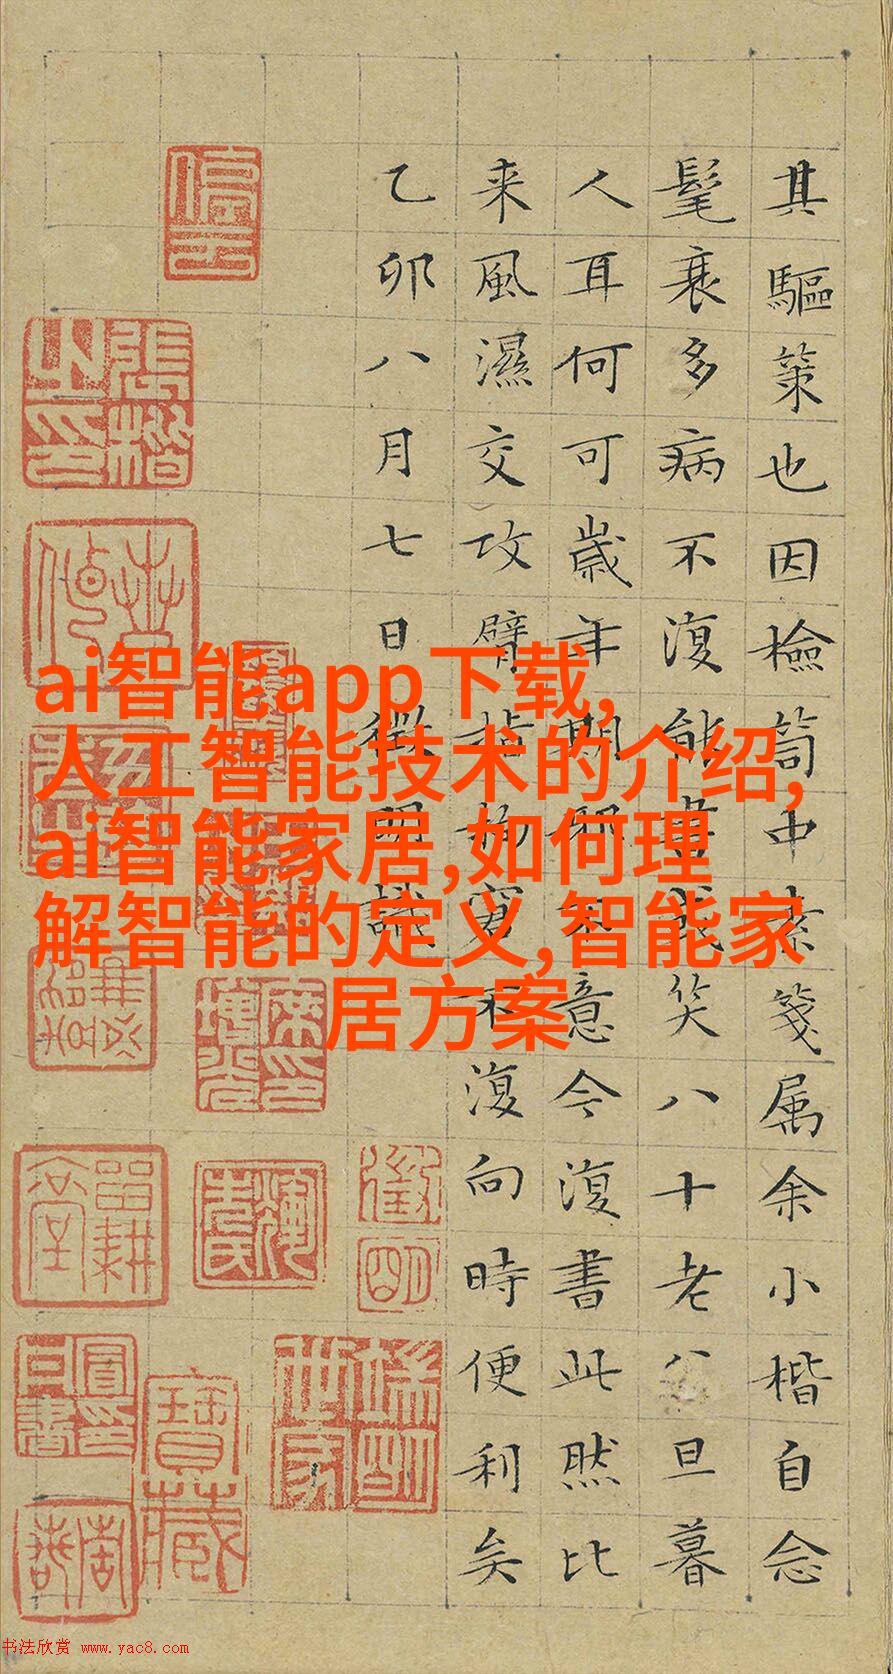 其驅策也因檢笥中素箋属余小楷自念
髦衰多病不復能書笑八十老旦暮
人耳何可歲年期耶不意今復書此然比
来風濕交攻臂指拘窘不復向時便利矣
乙卯八月七日徵明識
張楷之印
徵明
寶藏
ai智能app下载,
人工智能技术的介绍,
ai智能家居,如何理
解智能的定义,智能家
居方案
书法欣赏 www.yac8.com